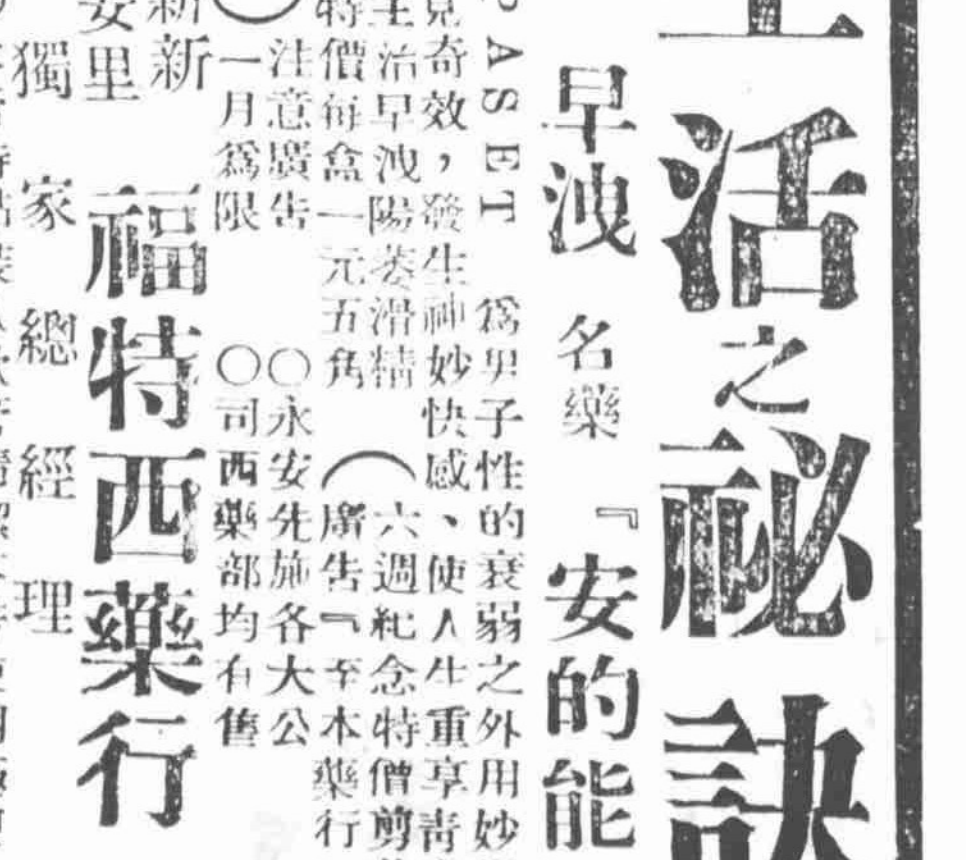 活之祕訣
早洩名藥『安的能
ASET 爲男子性的衰弱之外用妙
奇效，發生神妙快感、使人生重享靑
主治早洩陽萎滑精（六週紀念特價剪
特價每盒一元五角 廣告『至本藥行
注意廣告 ○○永安先施各大公
一月爲限 ○司西藥部均有售
新新
安里 福特西藥行
獨家總經理